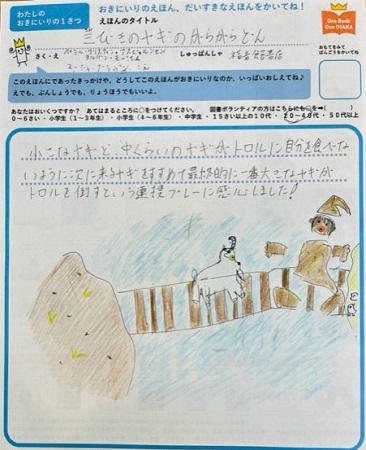 わたしの
おきにいりの1さつ
おきにいりのえほん、だいすきなえほんをかいてね!
One Book
One OSAKA
えほんのタイトル
三びきのヤギのがらがらどん
さく・え
しゅっぱんしゃ
福音館書店
おもてをみて
ばんごうをかいてね
このえほんにであったきっかけや、どうしてこのえほんがおきにいりなのか、いっぱいおしえてね♪
えでも、ぶんしょうでも、りょうほうでもいいよ。
あなたはおいくつですか? あてはまるところに○をつけてください。
図書ボランティアの方はこちらにも○を→( )
0~6さい・小学生(1~3年生)・小学生(4~6年生)・中学生・15さい以上の10代・20~40代・50代以上
小さなヤギと中くらいのヤギがトロルに自分を食べな
いように次に来るヤギをすすめて最終的に一番大きなヤギが
トロルを倒すという連携プレーに感心しました!